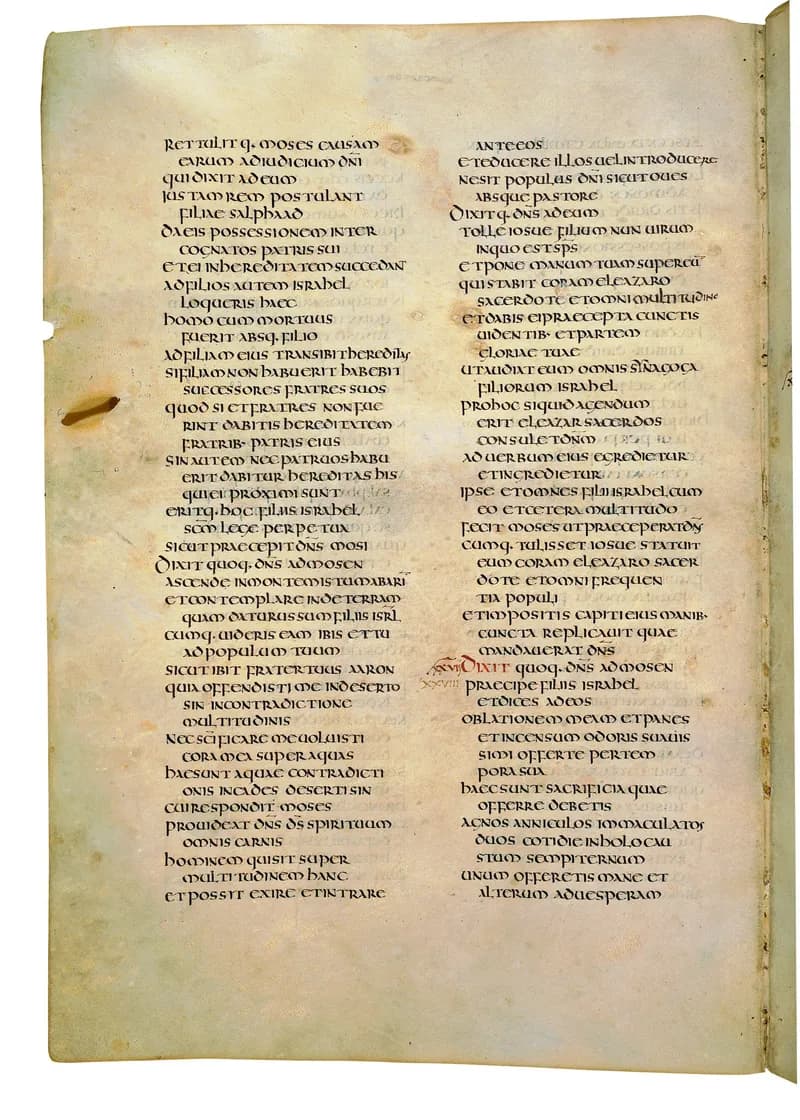 RETTULITQ· MOSES CAUSAM
EARUM ADIUDICIUM DN̄I
QUI DIXIT AD EUM
IUSTAM REM POSTULANT
FILIAE SALPHAAD
DA EIS POSSESSIONEM INTER
COGNATOS PATRIS SUI
ET EI IN HEREDITATEM SUCCEDANT
AD FILIOS AUTEM ISRAHEL
LOQUERIS HAEC
HOMO CUM MORTUUS
FUERIT ABSQ· FILIO
AD FILIAM EIUS TRANSIBIT HEREDITAS
SI FILIAM NON HABUERIT HABEBIT
SUCCESSORES FRATRES SUOS
QUOD SI ET FRATRES NON FUE
RINT DABITIS HEREDITATEM
FRATRIB· PATRIS EIUS
SIN AUTEM NEC PATRUOS HABU
ERIT DABITUR HEREDITAS HIS
QUI EI PROXIMI SUNT
ERITQ· HOC FILIIS ISRAHEL
SCM̄ LEGE PERPETUA
SICUT PRAECEPIT DN̄S MOSI
DIXIT QUOQ· DN̄S AD MOSEN
ASCENDE IN MONTEM ISTUM ABARI̅
ET CONTEMPLARE INDE TERRAM
QUAM DATURUS SUM FILIIS ISRL̄
CUMQ· UIDERIS EAM IBIS ET TU
AD POPULUM TUUM
SICUT IBIT FRATER TUUS AARON
QUIA OFFENDISTI ME IN DESERTO
SIN IN CONTRADICTIONE
MULTITUDINIS
NEC SCI̅FICARE ME UOLUISTI
CORAM EA SUPER AQUAS
HAE SUNT AQUAE CONTRADICTI
ONIS IN CADES DESERTI SIN
CUI RESPONDIT MOSES
PROUIDEAT DN̄S DS̄ SPIRITUUM
OMNIS CARNIS
HOMINEM QUI SIT SUPER
MULTITUDINEM HANC
ET POSSIT EXIRE ET INTRARE
ANTE EOS
ET EDUCERE ILLOS UEL INTRODUCERE
NE SIT POPULUS DN̄I SICUT OUES
ABSQUE PASTORE
DIXITQ· DN̄S AD EUM
TOLLE IOSUE FILIUM NUN UIRUM
IN QUO EST SPS̄
ET PONE MANUM TUAM SUPER EŪ
QUI STABIT CORAM ELEAZARO
SACERDOTE ET OMNI MULTITUDINE
ET DABIS EI PRAECEPTA CUNCTIS
UIDENTIB· ET PARTEM
GLORIAE TUAE
UT AUDIAT EUM OMNIS SYNAGOGA
FILIORUM ISRAHEL
PRO HOC SI QUID AGENDUM
ERIT ELEAZAR SACERDOS
CONSULET DN̄M
AD UERBUM EIUS EGREDIETUR
ET INGREDIETUR
IPSE ET OMNES FILII ISRAHEL CUM
EO ET CETERA MULTITUDO
FECIT MOSES UT PRAECEPERAT DN̄S
CUMQ· TULISSET IOSUE STATUIT
EUM CORAM ELEAZARO SACER
DOTE ET OMNI FREQUEN
TIA POPULI
ET IMPOSITIS CAPITI EIUS MANIB·
CUNCTA REPLICAUIT QUAE
MANDAUERAT DN̄S
DIXIT QUOQ· DN̄S AD MOSEN
XXVIII PRAECIPE FILIIS ISRAHEL
ET DICES AD EOS
OBLATIONEM MEAM ET PANES
ET INCENSUM ODORIS SUAUIS
SIMI OFFERTE PER TEM
PORA SUA
HAEC SUNT SACRIFICIA QUAE
OFFERRE DEBETIS
AGNOS ANNICULOS IMMACULATOS
DUOS COTIDIE IN HOLOCAU
STUM SEMPITERNUM
UNUM OFFERETIS MANE ET
ALTERUM AD UESPERAM